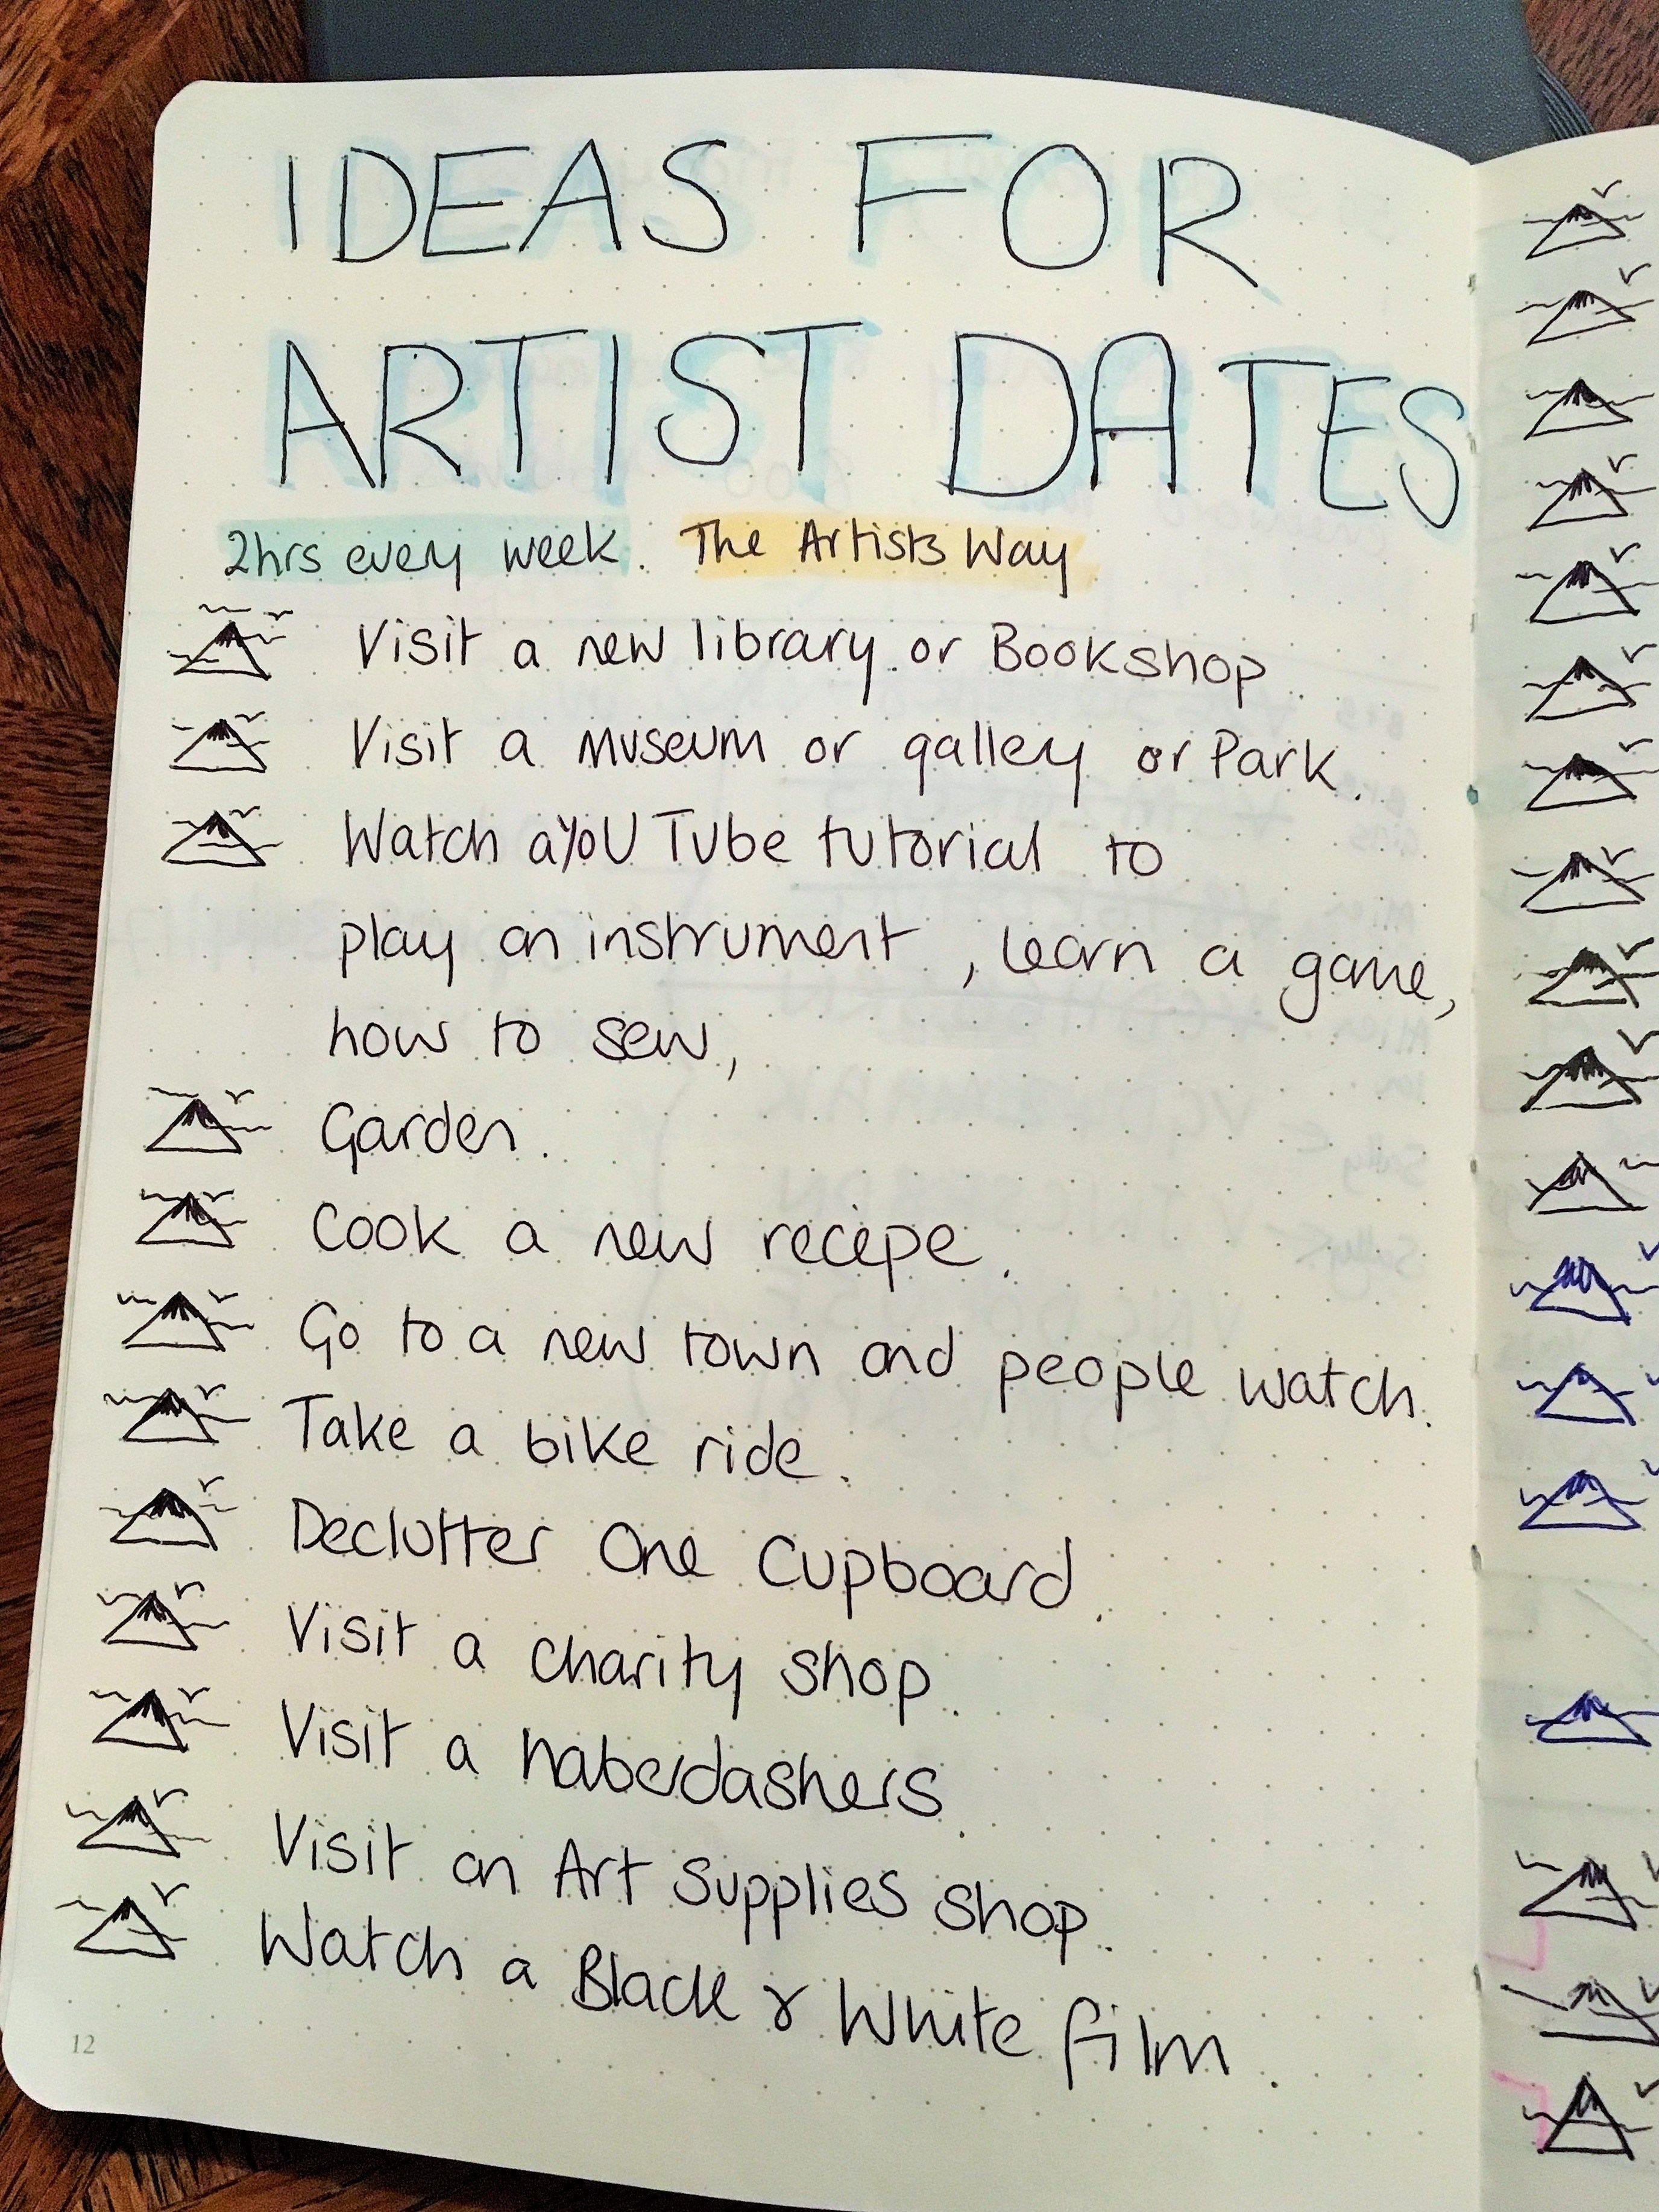 IDEAS FOR
ARTIST DATES
2hrs every week. The Artists Way
Visit a new library or Bookshop.
Visit a museum or galley or Park.
Watch a YouTube tutorial to
play an instrument, learn a game,
how to sew,
Garden.
Cook a new recepe.
Go to a new town and people watch.
Take a bike ride.
Declutter One Cupboard.
Visit a charity shop.
Visit a haberdashers.
Visit an Art Supplies shop.
Watch a Black & White film.
12